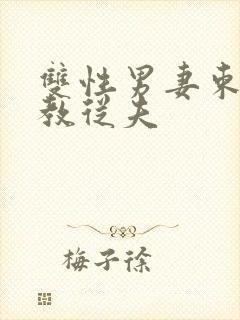 雙性男妻柬
教從夫
梅子徐